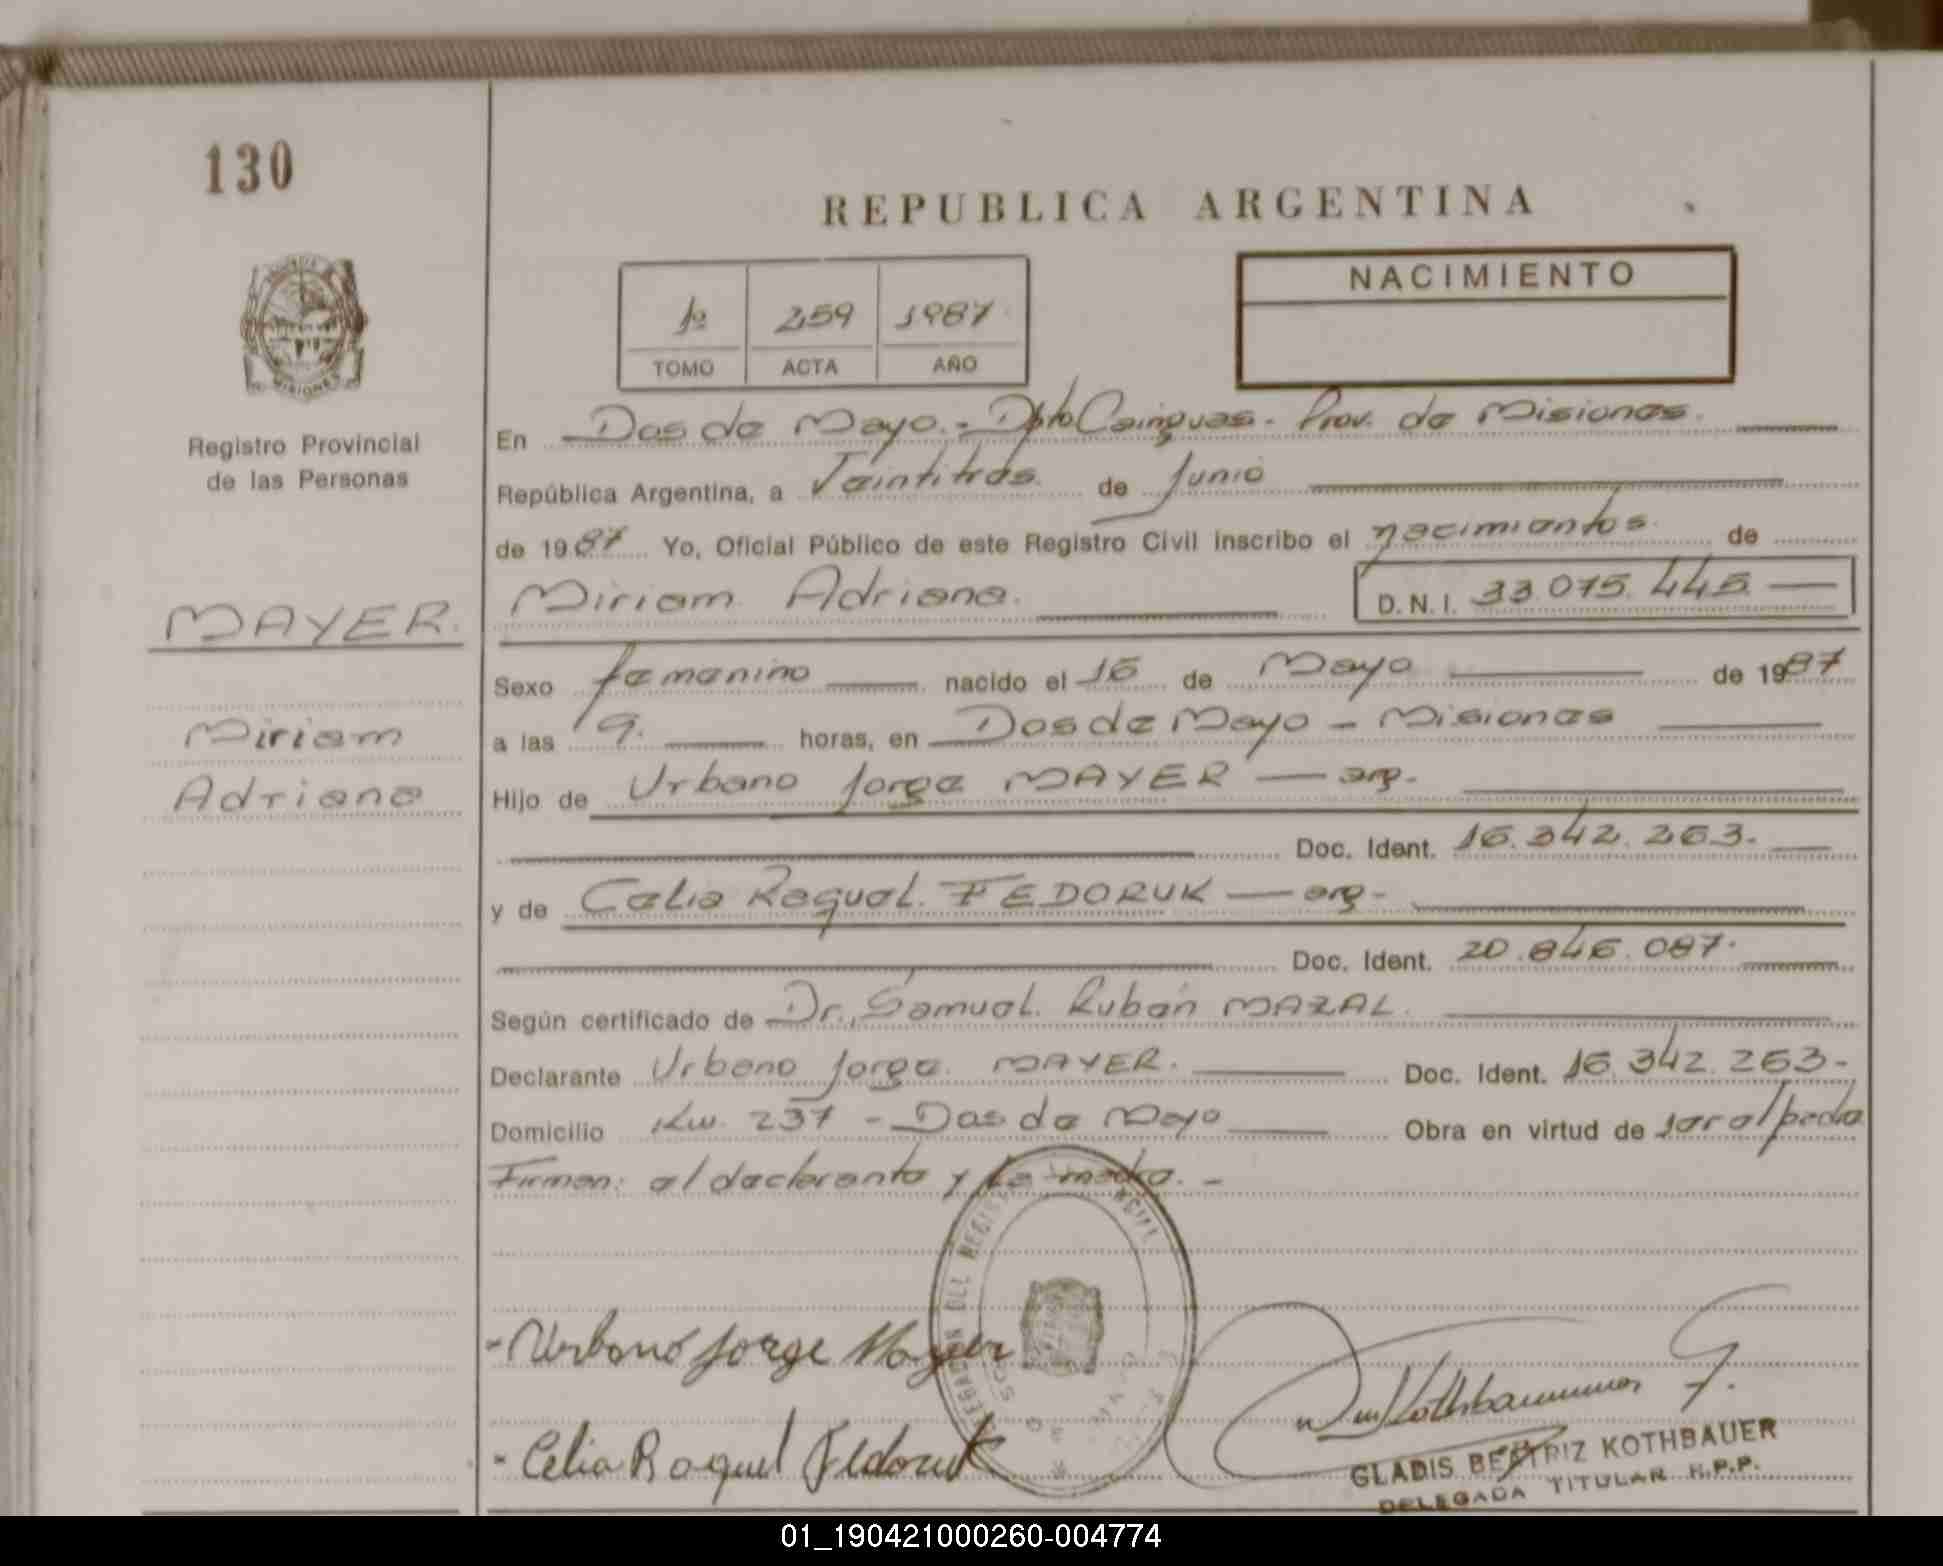 130
REPUBLICA ARGENTINA
NACIMIENTO
1º 259 1987
TOMO ACTA AÑO
MISIONES
Registro Provincial
de las Personas
En Dos de Mayo.- Dpto Cainguas - Prov. de Misiones.
República Argentina, a Veintitres de Junio
de 1987 Yo, Oficial Público de este Registro Civil inscribo el nacimientos. de
MAYER.
Miriam Adriana. D.N.I. 33.075.445
Sexo femenino nacido el 16 de Mayo de 1987
Miriam
a las 9. horas, en Dos de Mayo - Misiones
Adriana
Hijo de Urbano Jorge MAYER — arg.
Doc. Ident. 16.342.263.
y de Celia Raquel FEDORUK — arg-
Doc. Ident. 20.846.087.
Según certificado de Dr. Samuel Rubén MAZAL.
Declarante Urbano Jorge MAYER. Doc. Ident. 16.342.263-
Domicilio Km. 237 - Dos de Mayo Obra en virtud de
Firman: el declarante y la madre.-
- Urbano Jorge Mayer
- Celia Raquel Fedoruk
GLADIS BEATRIZ KOTHBAUER
DELEGADA TITULAR R.P.P.
01_190421000260-004774